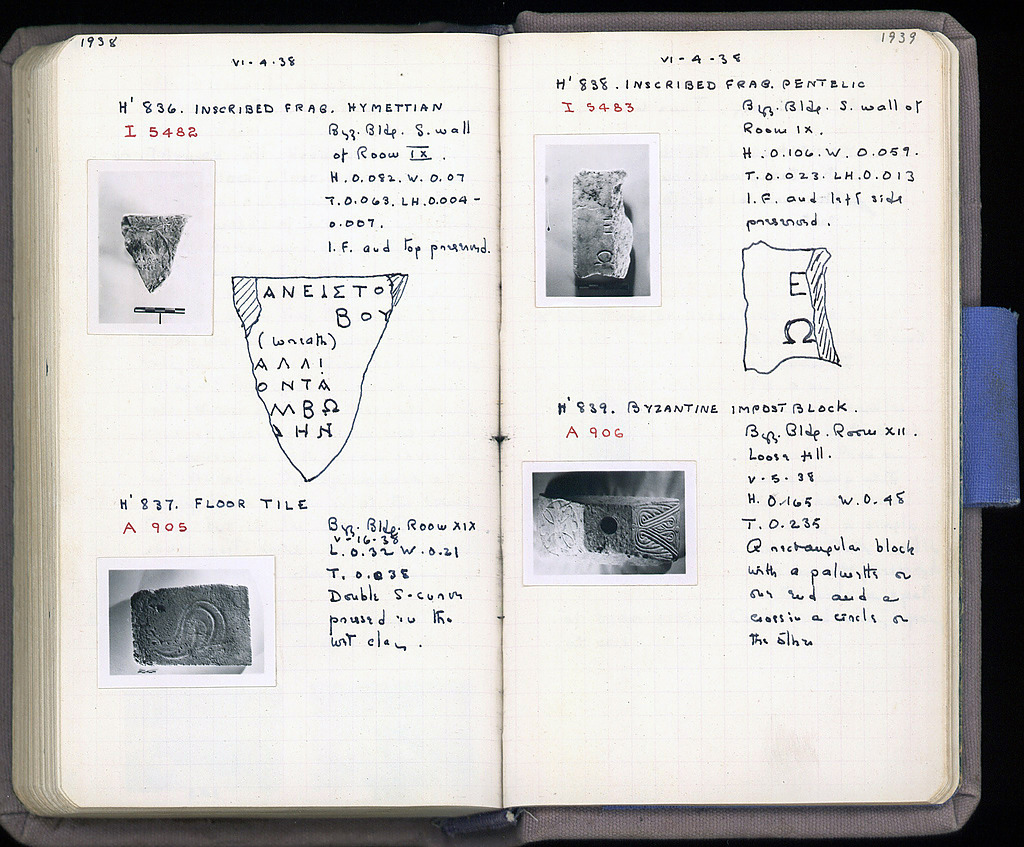 1938
VI-4-38
H' 836. INSCRIBED FRAG. HYMETTIAN
I 5482
Byz. Bldg. S. wall
of Room IX.
H. 0.082. W. 0.07
T. 0.063. LH. 0.004-
0.007.
I.F. and top preserved.
ΑΝΕΙΣΤΟ
ΒΟΥ
(wreath)
ΑΛΛΙ
ΟΝΤΑ
ΜΒΩ
ΗΝ
H' 837. FLOOR TILE
A 905
Byz. Bldg. Room XIX
V-16-38
L. 0.32 W. 0.21
T. 0.038
Double S-curve
pressed in the
wet clay.
1939
VI-4-38
H' 838. INSCRIBED FRAG. PENTELIC
I 5483
Byz. Bldg. S. wall of
Room IX.
H. 0.106. W. 0.059.
T. 0.023. LH. 0.013
I.F. and left side
preserved.
Ε
Ω
H' 839. BYZANTINE IMPOST BLOCK.
A 906
Byz. Bldg. Room XII.
Loose fill.
V-5-38
H. 0.165 W. 0.48
T. 0.235
A rectangular block
with a palmette on
one end and a
cross in a circle on
the other